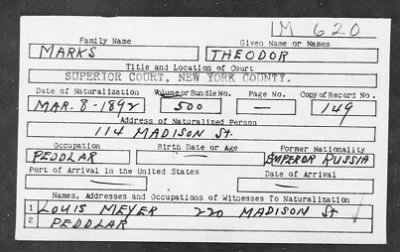 M 620
Family Name Given Name or Names
MARKS THEODOR
Title and Location of Court
SUPERIOR COURT, NEW YORK COUNTY.
Date of Naturalization Volume or Bundle No. Page No. Copy of Record No.
MAR. 8-1892 500 — 149
Address of Naturalized Person
114 MADISON St.
Occupation Birth Date or Age Former Nationality
PEDDLAR — EMPEROR RUSSIA
Port of Arrival in the United States Date of Arrival
— —
Names, Addresses and Occupations of Witnesses To Naturalization
1 LOUIS MEYER 220 MADISON St
2 PEDDLAR